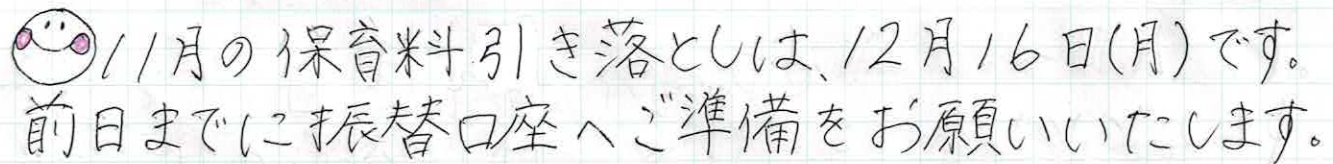 11月の保育料引き落としは、12月16日(月)です。
前日までに振替口座へご準備をお願いいたします。